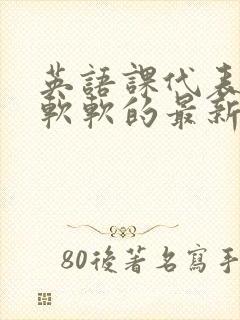 英語課代表
軟軟的最新
80後著名寫手